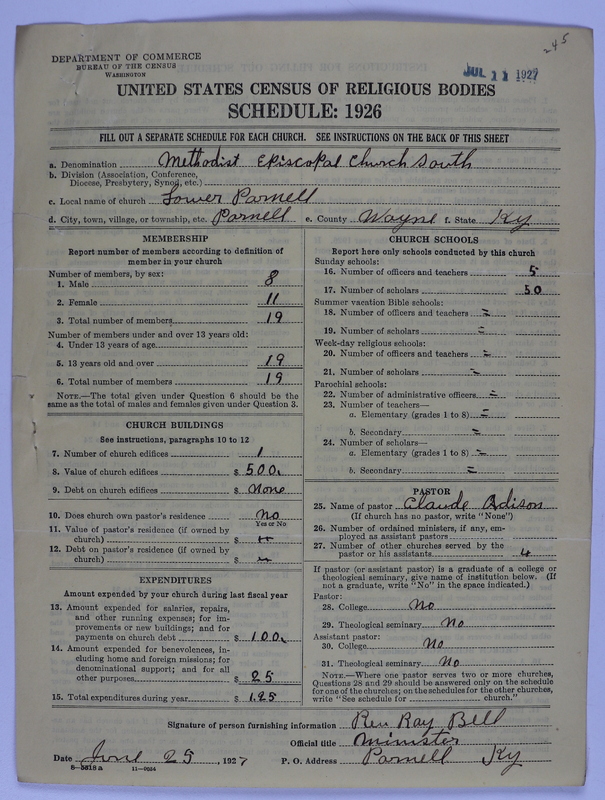 245
DEPARTMENT OF COMMERCE
BUREAU OF THE CENSUS
WASHINGTON
JUL 11 1927
UNITED STATES CENSUS OF RELIGIOUS BODIES
SCHEDULE: 1926
FILL OUT A SEPARATE SCHEDULE FOR EACH CHURCH. SEE INSTRUCTIONS ON THE BACK OF THIS SHEET
a. Denomination Methodist Episcopal Church South
b. Division (Association, Conference,
Diocese, Presbytery, Synod, etc.)
c. Local name of church Lower Parnell
d. City, town, village, or township, etc. Parnell e. County Wayne f. State Ky
MEMBERSHIP
Report number of members according to definition of
member in your church
Number of members, by sex:
1. Male 8
2. Female 11
3. Total number of members 19
Number of members under and over 13 years old:
4. Under 13 years of age
5. 13 years old and over 19
6. Total number of members 19
NOTE.—The total given under Question 6 should be
same as the total of males and females given under Question 3.
CHURCH BUILDINGS
See instructions, paragraphs 10 to 12
7. Number of church edifices 1
8. Value of church edifices $ 500.
9. Debt on church edifices $ None
10. Does church own pastor's residence No
Yes or No
11. Value of pastor's residence (if owned by
church) $
12. Debt on pastor's residence (if owned by
church) $
EXPENDITURES
Amount expended by your church during last fiscal year
13. Amount expended for salaries, repairs,
and other running expenses; for im-
provements or new buildings; and for
payments on church debt $ 100.
14. Amount expended for benevolences, in-
cluding home and foreign missions; for
denominational support; and for all
other purposes $ 25
15. Total expenditures during year $ 125
CHURCH SCHOOLS
Report here only schools conducted by this church
Sunday schools:
16. Number of officers and teachers 5
17. Number of scholars 50
Summer vacation Bible schools:
18. Number of officers and teachers =
19. Number of scholars =
Week-day religious schools:
20. Number of officers and teachers =
21. Number of scholars =
Parochial schools:
22. Number of administrative officers =
23. Number of teachers—
a. Elementary (grades 1 to 8) =
b. Secondary =
24. Number of scholars—
a. Elementary (grades 1 to 8) =
b. Secondary =
PASTOR
25. Name of pastor Claude Adison
(If church has no pastor, write "None")
26. Number of ordained ministers, if any, em-
ployed as assistant pastors
27. Number of other churches served by the
pastor or his assistants 4
If pastor (or assistant pastor) is a graduate of a college or
theological seminary, give name of institution below. (If
not a graduate, write "No" in the space indicated.)
Pastor:
28. College No
29. Theological seminary No
Assistant pastor:
30. College No
31. Theological seminary No
NOTE.—Where one pastor serves two or more churches,
Questions 28 and 29 should be answered only on the schedule
for one of the churches; on the schedules for the other churches,
write "See schedule for church."
Signature of person furnishing information Rev Ray Bell
Official title Minister
Date June 25, 1927 P. O. Address Parnell Ky
8-5318a 11-9034